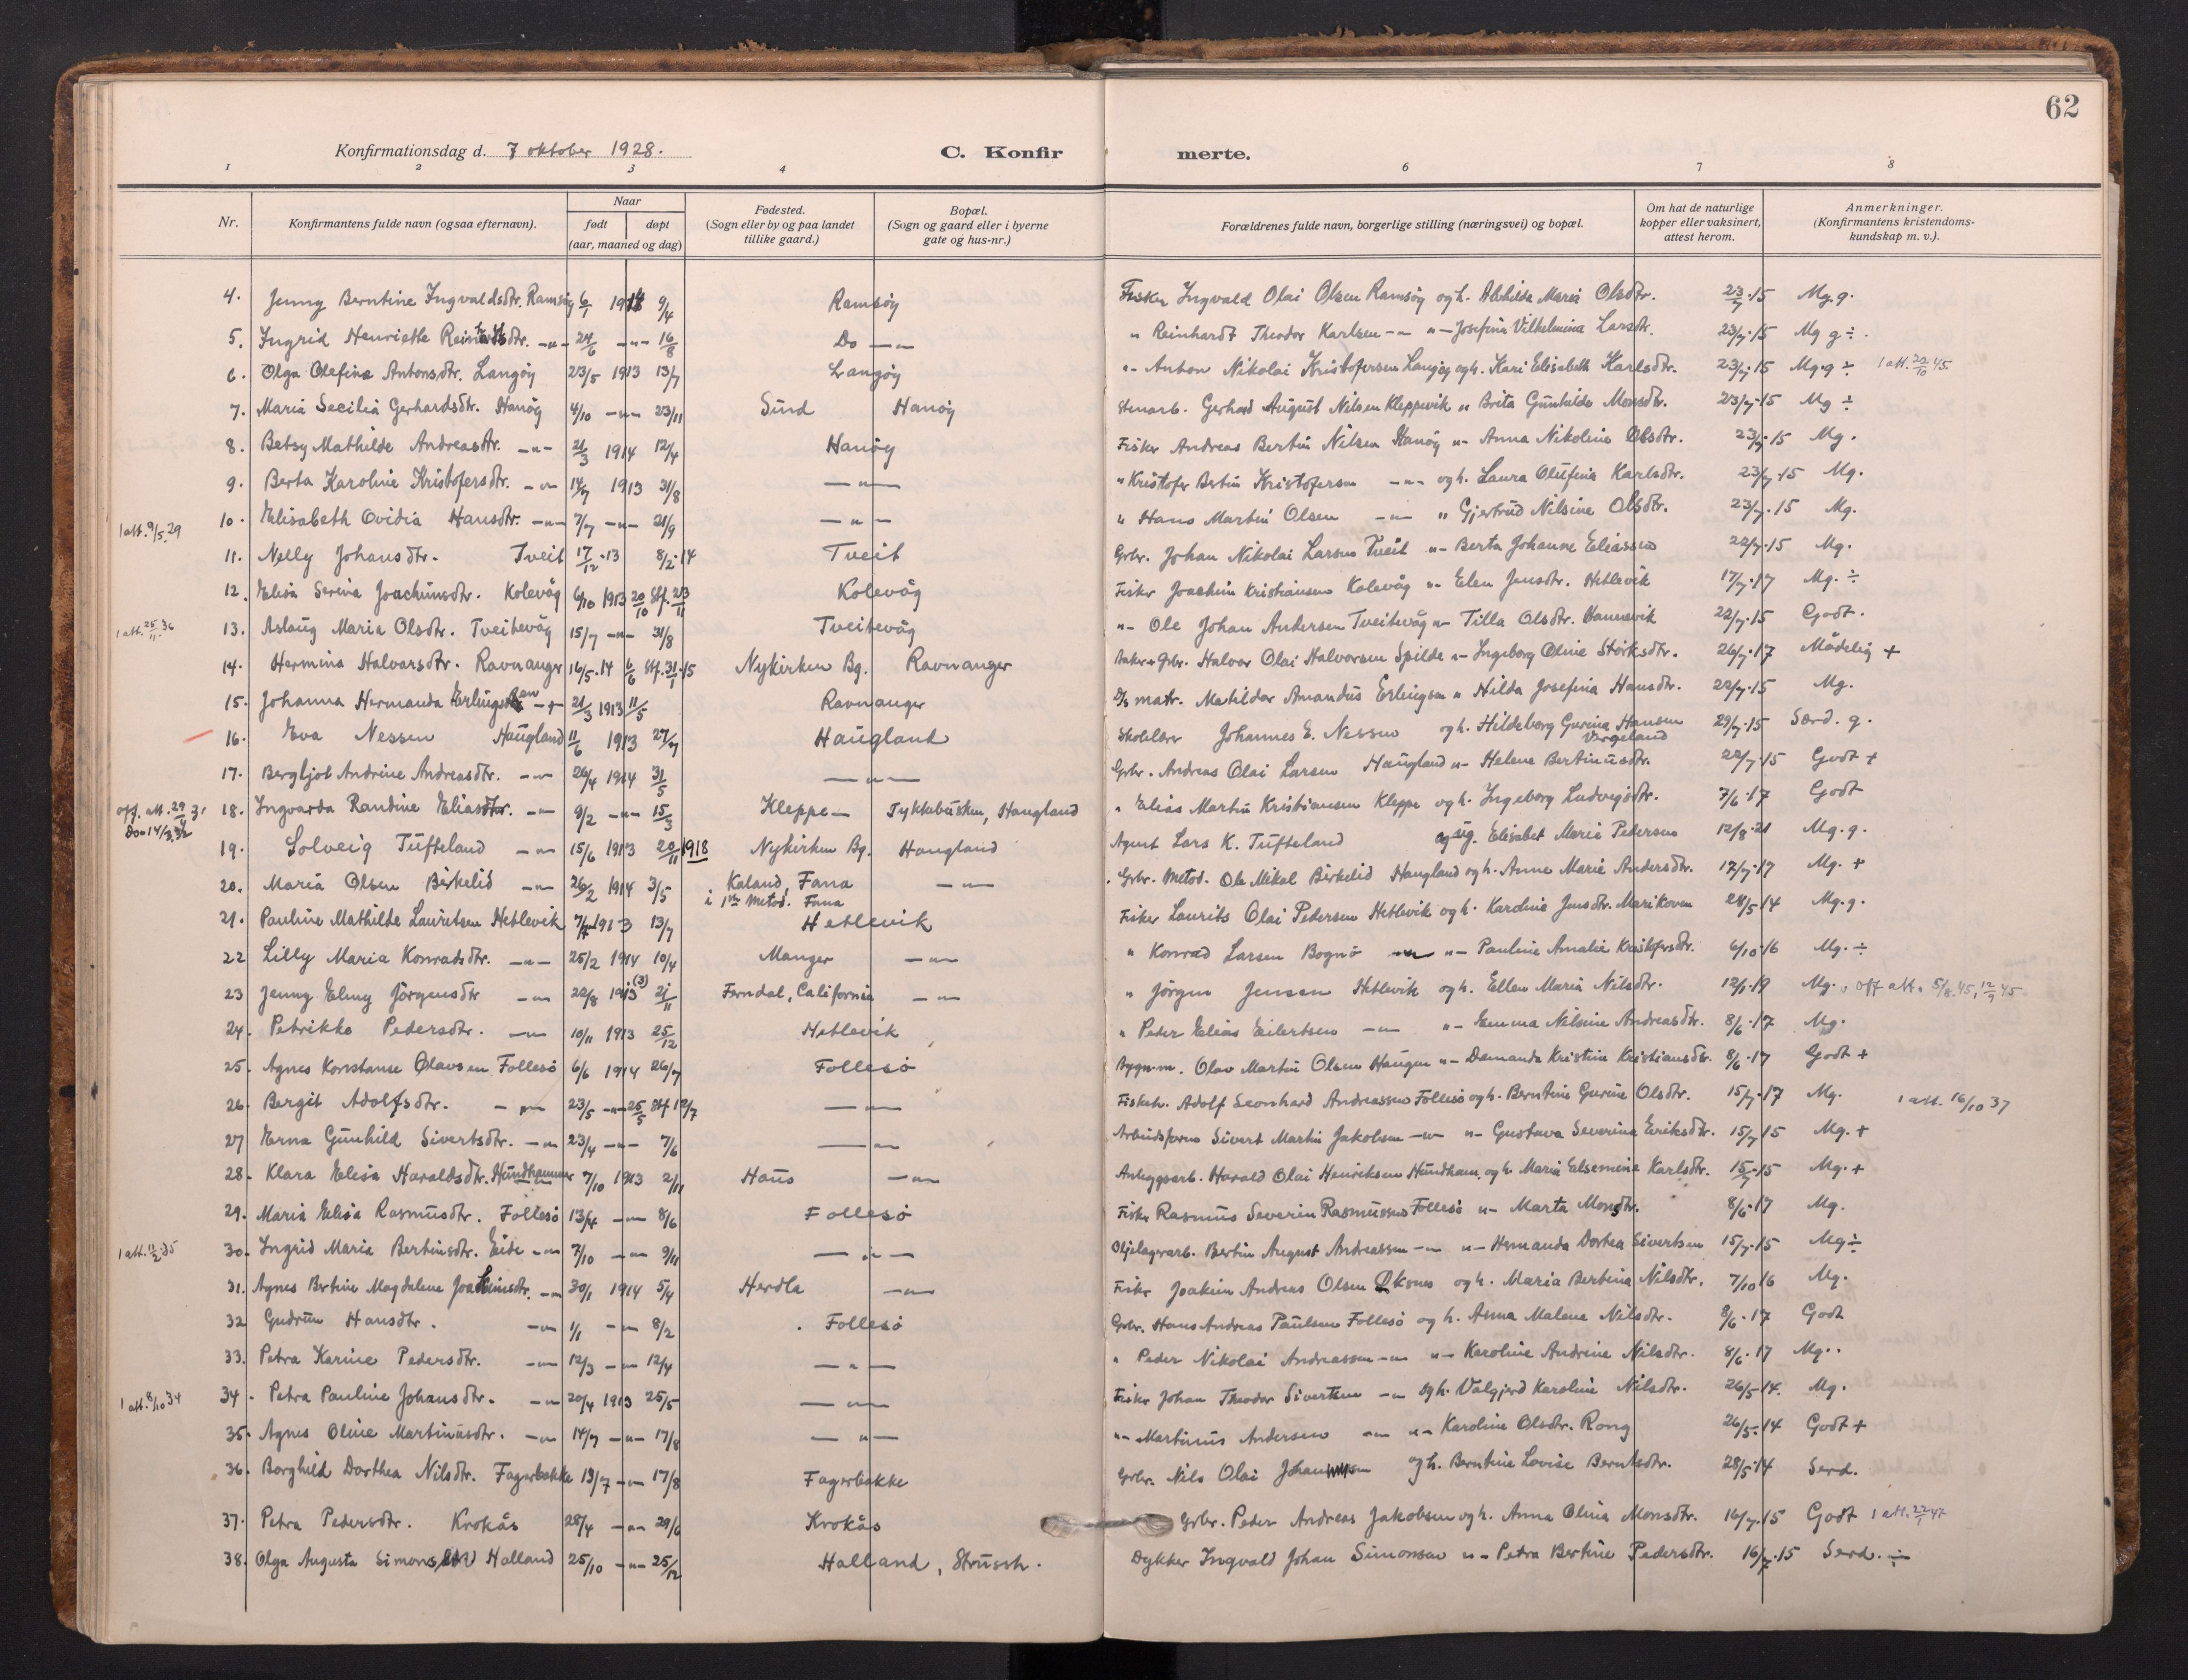 62
Konfirmationsdag d. 7 oktober 1928. C. Konfir merte.
1 2 3 4 6 7 8
Nr. Konfirmantens fulde navn (ogsaa efternavn). Naar født døpt (aar, maaned og dag) Fødested. (Sogn eller by og paa landet tillike gaard.) Bopæl. (Sogn og gaard eller i byerne gate og hus-nr.) Forældrenes fulde navn, borgerlige stilling (næringsvei) og bopæl. Om hat de naturlige kopper eller vaksinert, attest herom. Anmerkninger. (Konfirmantens kristendoms-kundskap m. v.).
4. Jenny Berntine Ingvaldsdtr. Ramsøy 6/1 1914 9/4 Ramsøy Fisker Ingvald Olai Olsen Ramsøy og h. Maria Olsdtr. 23/7.15 Mg.g.
5. Ingrid Henriette Reinhardtsdtr. -"- 24/6 -"- 16/8 Do -"- " Reinhardt Theodor Karlsen -"- "- Josefina Vilhelmina Larsdtr. 23/7.15 Mg g ÷.
6. Olga Olefine Antonsdtr. Langøy 23/5 1913 13/7 Langøy "- Anton Nikolai Kristofersen Langøy og h. Kari Elisabeth Karlsdtr. 23/7.15 Mg.g ÷ 1 att. 22/10 45
7. Maria Secilia Gerhardsdtr. Hanøy 4/10 -"- 23/11 Sund Hanøy Stenarb. Gerhard August Nilsen Kleppevik " Brita Gunhilda Monsdtr. 23/7.15 Mg ÷
8. Betsy Mathilde Andreasdtr. -"- 21/3 1914 12/4 Hanøy Fisker Andreas Bertin Nilsen Hanøy "- Anna Nikoline Olsdtr. 23/7.15 Mg.
9. Berta Karoline Kristofersdtr. -"- 14/7 1913 31/8 -"- " Kristofer Bertin Kristofersen -"- og h. Laura Olufina Karlsdtr. 23/7.15 Mg.
1 att. 9/5.29 10. Elisabeth Ovidia Hansdtr. -"- 7/7 -"- 21/9 -"- " Hans Martin Olsen -"- " Gjertrud Nilsine Olsdtr. 23/7.15 Mg.
11. Nelly Johansdtr. Tveit 17/12.13 8/2.14 Tveit Grbr. Johan Nikolai Larsen Tveit "- Berta Johanne Eliassen 22/7.15 Mg.
12. Elisa Serina Joachimsdtr. Kolevåg 6/10 1913 20/10 Stf. 23/11 Kolevåg Fisker Joachim Kristiansen Kolevåg "- Elen Jensdtr. Hetlevik 17/7.17 Mg. ÷
1 att. 25/11.36 13. Aslaug Maria Olsdtr. Tveitevåg 15/7 -"- 31/8 Tveitevåg "- Ole Johan Andersen Tveitevåg "- Tilla Olsdtr. Hannevik 22/7.15 Godt.
14. Hermina Halvorsdtr. Ravnanger 16/5.14 6/6 Stf. 31/1.15 Nykirken Bg. Ravnanger Halvor Olai Halvorsen Spilde "- Ingeborg Oline Størksdtr. 26/7.17 Mådelig +
15. Johanna Hermanda Erlingsen -"- 21/3 1913 11/5 Ravnanger D/s matr. Mathildor Amandus Erlingsen " Hilda Josefina Hansdtr. 22/7.15 Mg.
16. Eva Nessen Haugland 11/6 1913 27/7 Haugland Skolelærer Johannes E. Nessen og h. Hildeborg Gurina Hansen Vergeland 29/7.15 Særd. g.
17. Bergljot Andrine Andreasdtr. -"- 26/4 1914 31/5 -"- Grbr. Andreas Olai Larsen Haugland "- Helene Bertinusdtr. 22/7.15 Godt +
off. att. 29/4 31 Do- 14/3.32 18. Ingvarda Randine Eliasdtr. -"- 9/2 -"- 15/3 Kleppe - Tyktabusken, Haugland " Elias Martin Kristiansen Kleppe og h. Ingeborg Ludvigsdtr. 7/6.17 Godt
19. Solveig Tufteland -"- 15/6 1913 20/11 1918 Nykirken Bg. Haugland Agent Lars K. Tufteland og ug. Elisabet Marie Pedersen 12/8.21 Mg.g.
20. Maria Olsen Birkelid -"- 26/2 1914 3/5 Kaland, Fana i 1ste Metod. Fana -"- Grbr. Metod. Ole Mikal Birkelid Haugland og h. Anne Marie Andersdtr. 17/7.17 Mg. +
21. Pauline Mathilde Lauritsen Hetlevik 7/4 1913 13/7 Hetlevik Fisker Laurits Olai Pedersen Hetlevik og h. Karoline Jensdtr. Marikoven 28/5.14 Mg.g.
22 Lilly Maria Konradsdtr. -"- 25/2 1914 10/4 Manger -"- " Konrad Larsen Bognø "- Pauline Amalie Kristofersdtr. 6/10.16 Mg. ÷
23 Jenny Elmy Jörgensdtr -"- 22/8 1913 (3) 21/11 Ferndal, California -"- " Jörgen Jensen Hetlevik og h. Ellen Maria Nilsdtr. 12/1.19 Mg. off att. 5/8.45, 12/9 45
24. Petrikke Pedersdtr. -"- 10/11 1913 25/12 Hetlevik " Peder Elias Eilertsen -"- "- Emma Nilsine Andreasdtr. 8/6.17 Mg.
25. Agnes Konstanse Olavsen Follesö 6/6 1914 26/7 Follesö Bygn.m. Olav Martin Olsen Haugen "- Demanda Kristine Kristiansdtr. 8/6.17 Godt +
26. Bergit Adolfsdtr. -"- 23/5 -"- 25/5 Stf 12/7 -"- Fiskeh. Adolf Leonhard Andreassen Follesö og h. Berntine Gurine Olsdtr. 15/7.17 Mg. 1 att. 16/10 37
27 Erna Gunhild Sivertsdtr. -"- 23/4 -"- 7/6 -"- Arbeidsform Sivert Martin Jakobsen -"- "- Gustava Severina Eriksdtr. 15/7.15 Mg. +
28. Klara Elisa Haraldsdtr. Hundhammer 7/10 1913 2/11 Haus -"- Anleggsarb. Harald Olai Henriksen Hundham. og h. Maria Elsemine Karlsdtr. 15/7.15 Mg. +
29. Maria Elisa Rasmusdtr. Follesö 13/4 -"- 8/6 Follesö Fisker Rasmus Severin Rasmussen Follesö "- Marta Monsdtr. 8/6.17 Mg.
1 att. 12/2.35 30. Ingrid Maria Bertinsdtr. Eide -"- 7/10 -"- 9/11 -"- Oljelagerarb. Bertin August Andreassen -"- "- Hermanda Dortea Sivertsen 15/7.15 Mg ÷
31. Agnes Bertine Magdelene Joakimsdtr. -"- 30/1 1914 5/4 Herdla -"- Fisker Joakim Andreas Olsen Öksnes og h. Maria Bertina Nilsdtr. 7/10 16 Mg.
32 Gudrun Hansdtr. -"- 1/1 -"- 8/2 Follesö Grbr. Hans Andreas Paulsen Follesö og h. Anna Malene Nilsdtr. 8/6.17 Godt
33. Petra Karine Pedersdtr. -"- 12/3 -"- 12/4 -"- " Peder Nikolai Andreassen -"- "- Karoline Andrine Nilsdtr. 8/6.17 Mg.
1 att. 8/10 34 34. Petra Pauline Johansdtr. -"- 20/4 1913 25/5 -"- Fisker Johan Theodor Sivertsen -"- og h. Valgjerd Karoline Nilsdtr. 26/5.14. Mg.
35. Agnes Oline Martinusdtr. -"- 14/7 -"- 17/8 -"- "- Martinus Andersen -"- "- Karoline Olsdtr. Rong 26/5.14 Godt +
36. Borghild Dorthea Nilsdtr. Fagerbakke 13/7 -"- 17/8 Fagerbakke Grbr. Nils Olai Johannesen og h. Berntine Lovise Berntsdtr. 28/5.14 Serd.
37. Petra Pedersdtr. Krokås 28/4 -"- 29/6 Krokås Grbr. Peder Andreas Jakobsen og h. Anna Olina Monsdtr. 16/7.15 Godt 1 att. 22/1 47
38. Olga Augusta Simonsen Halland 25/10 -"- 25/12 Halland, Strussh. Dykker Ingvald Johan Simonsen "- Petra Bertine Pedersdtr. 16/7.15 Serd. ÷